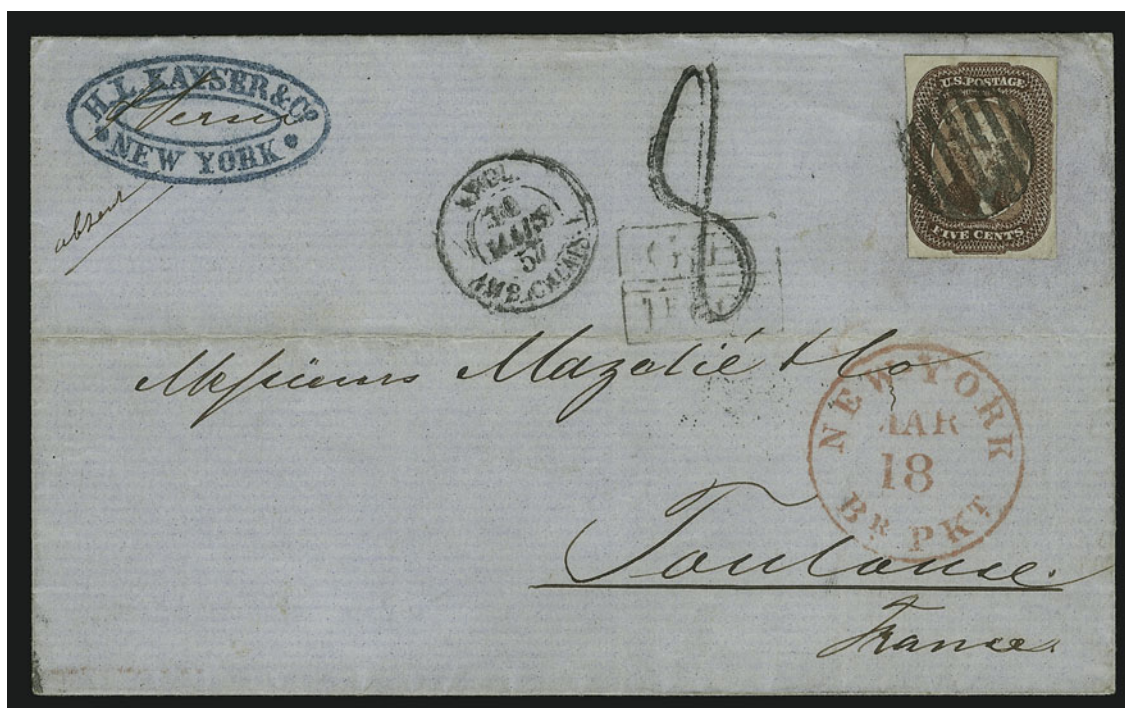 H. L. KAYSER & Co
NEW YORK
absent
U.S. POSTAGE
FIVE CENTS
8
ANGL.
30
MARS
57
AMB. CALAIS
Messieurs Mazelié & Co
NEW YORK
MAR
18
BR PKT
Toulouse.
France.